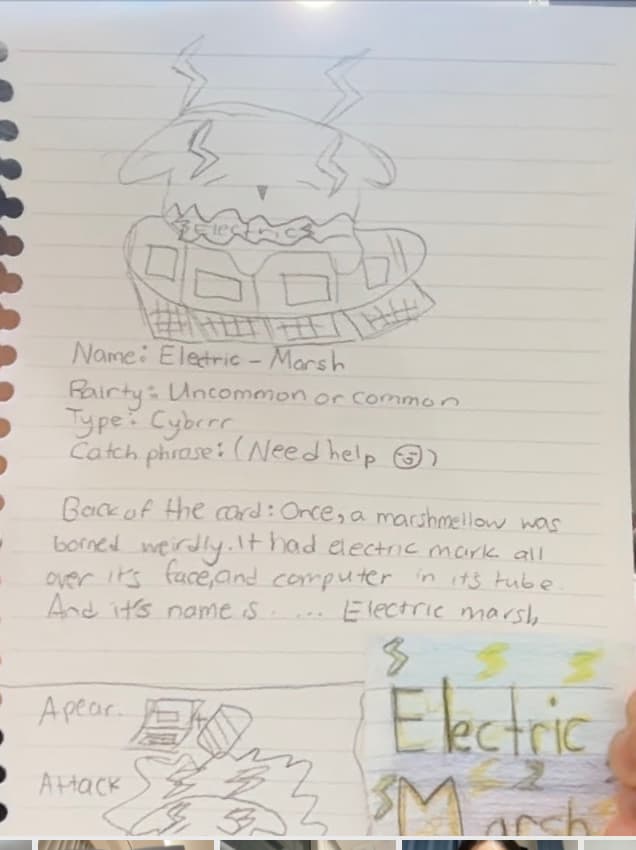 Electric
Name: Electric - Marsh
Rairty: Uncommon or common
Type: Cybrrr
Catch phrase: (Need help 😉)
Back of the card: Once, a marshmellow was
borned weirdly. It had electric mark all
over it's face, and computer in it's tube.
And it's name is ..... Electric marsh
Apear.
Attack
Electric
Marsh